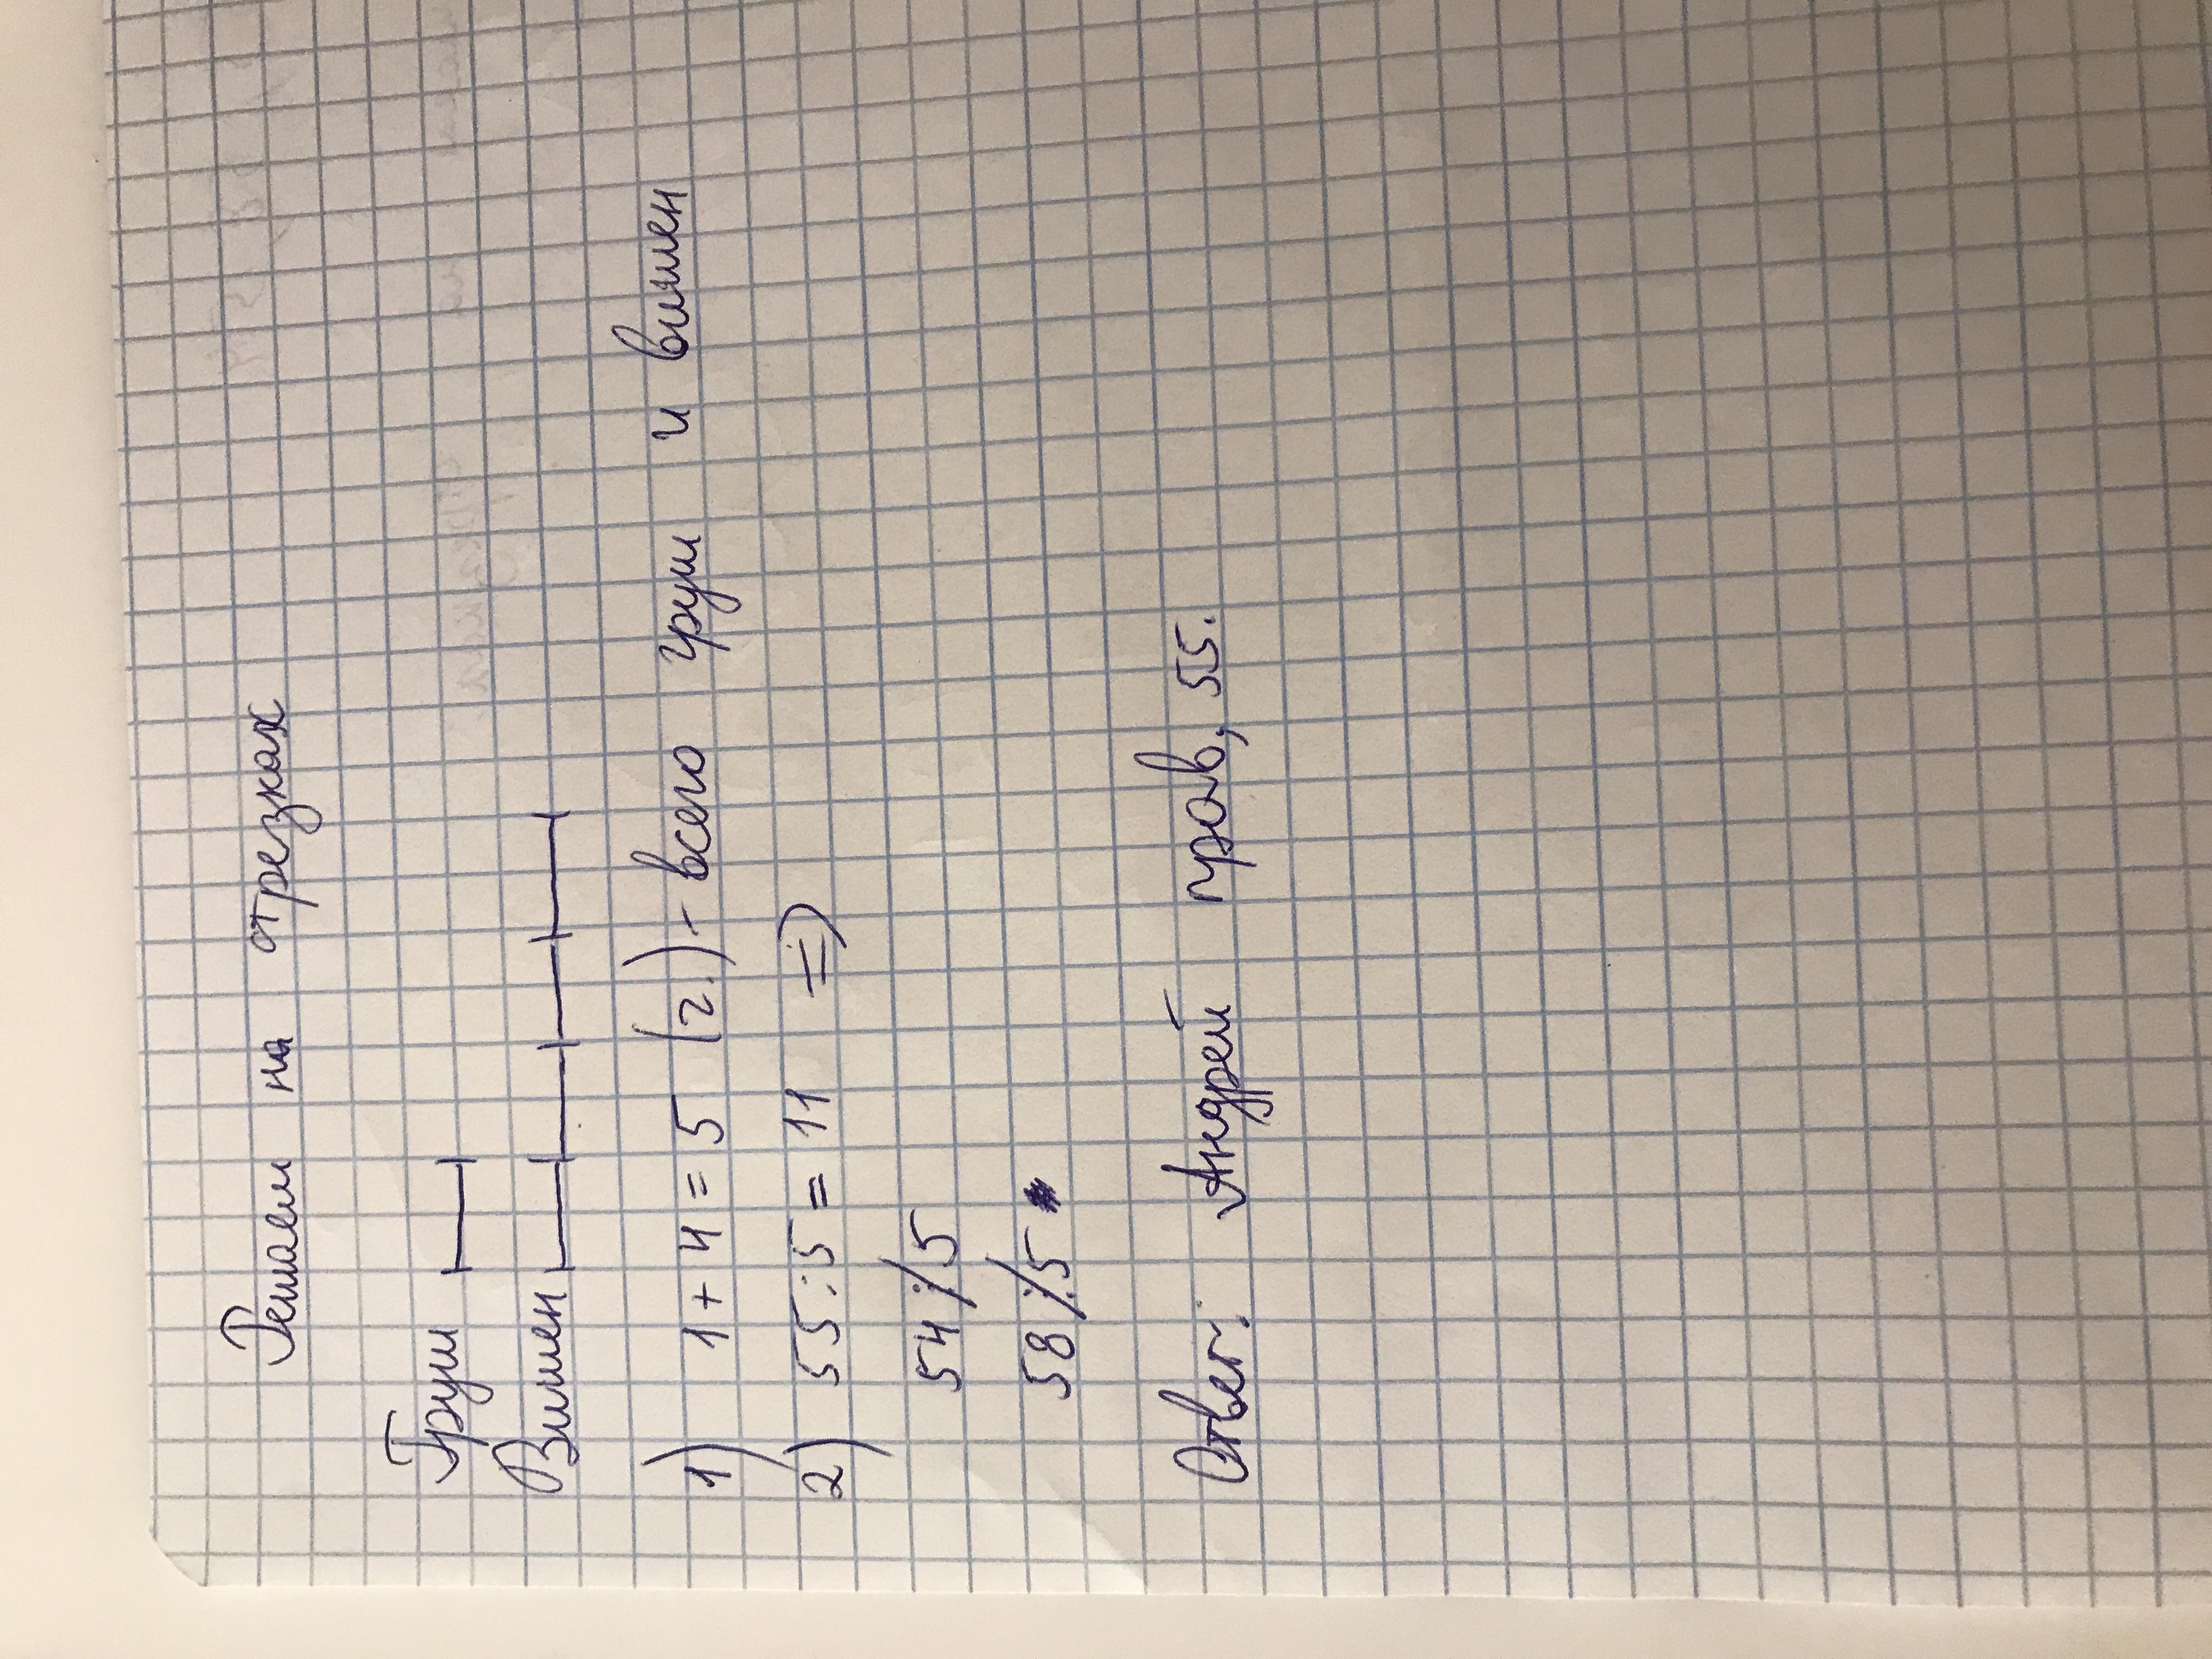 Решаем на отрезках
Груш
Вишен
1) 1 + 4 = 5 (г.) - всего груш и вишен
2) 55 : 5 = 11 =>
54 ⁒ 5
58 ⁒ 5
Ответ: Андрей прав, 55.